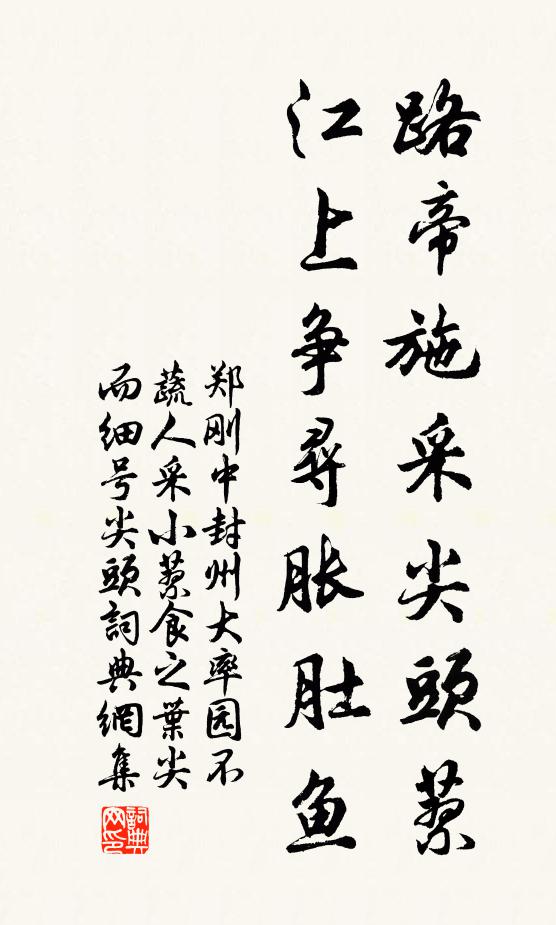 路帝施采尖頭藜
江上争尋胀肚鱼
郑刚中封州大率园不
蔬人采小藜食之葉尖
而细号尖頭詞典網集